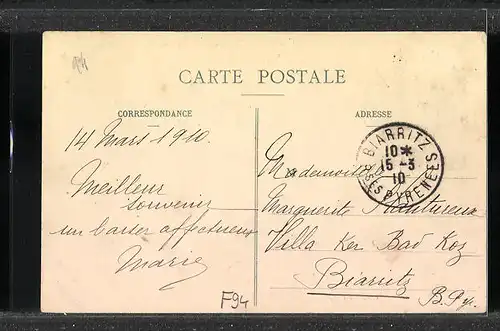 94
CARTE POSTALE
CORRESPONDANCE
ADRESSE
14 Mars 1910.
Meilleur
souvenir
un baiser affectueux
Marie
Mademoiselle
Marguerite
Villa Ker Bad Koz
Biarritz
B. Py.
BIARRITZ
10 *
15 - 3
10
BSES PYRENEES
F94